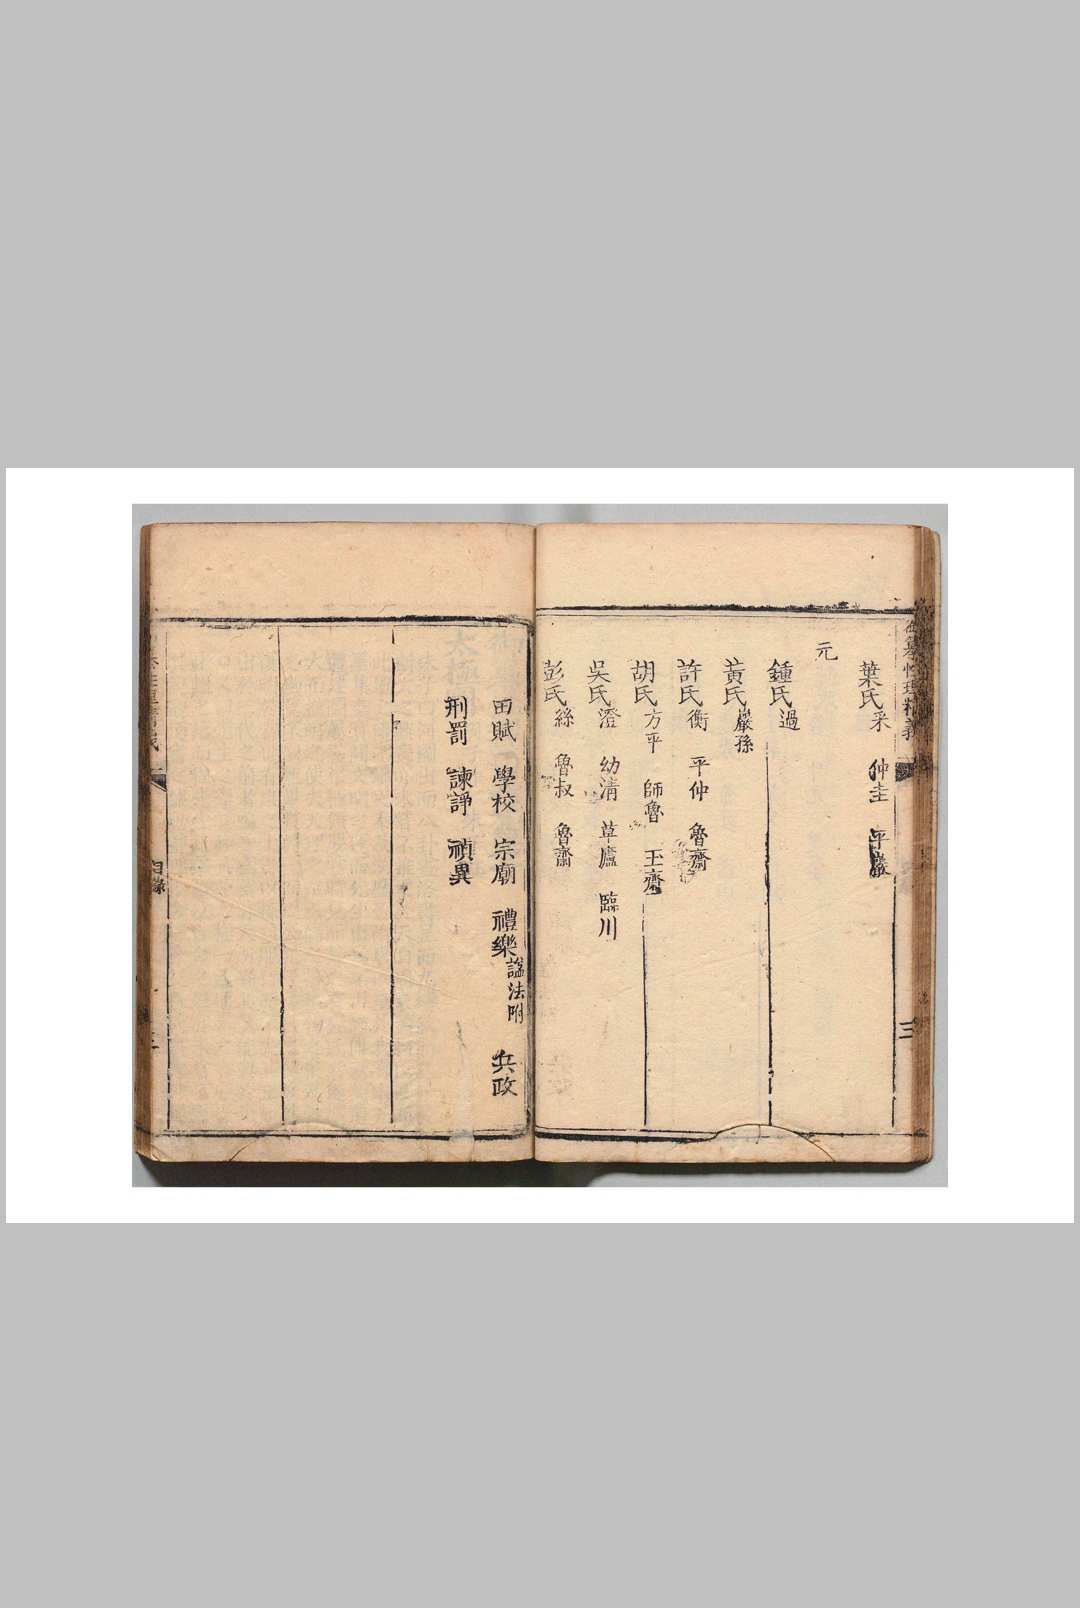 御纂性理精義
三
葉氏采 仲圭 平巖
元
鍾氏過
黃氏巖孫
許氏衡 平仲 魯齋
胡氏方平 師魯 玉齋
吳氏澄 幼清 草廬 臨川
彭氏絲 魯叔 魯齋
田賦 學校 宗廟 禮樂謚法附 兵政
刑罰 諫諍 禎異
目錄